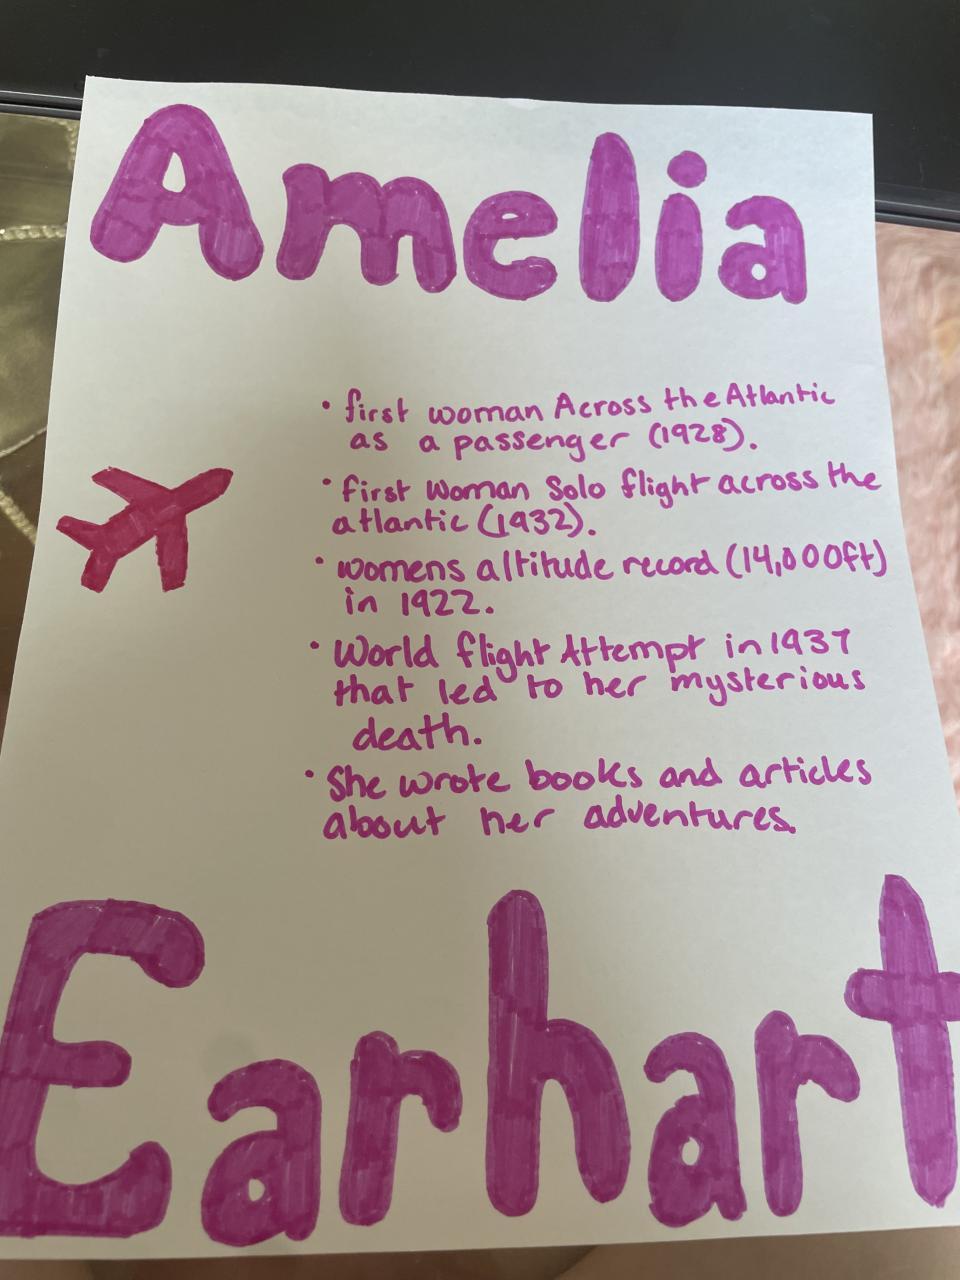 Amelia
• first woman Across the Atlantic
as a passenger (1928).
• first Woman Solo flight across the
atlantic (1932).
• womens altitude record (14,000ft)
in 1922.
• World flight Attempt in 1937
that led to her mysterious
death.
• She wrote books and articles
about her adventures.
Earhart